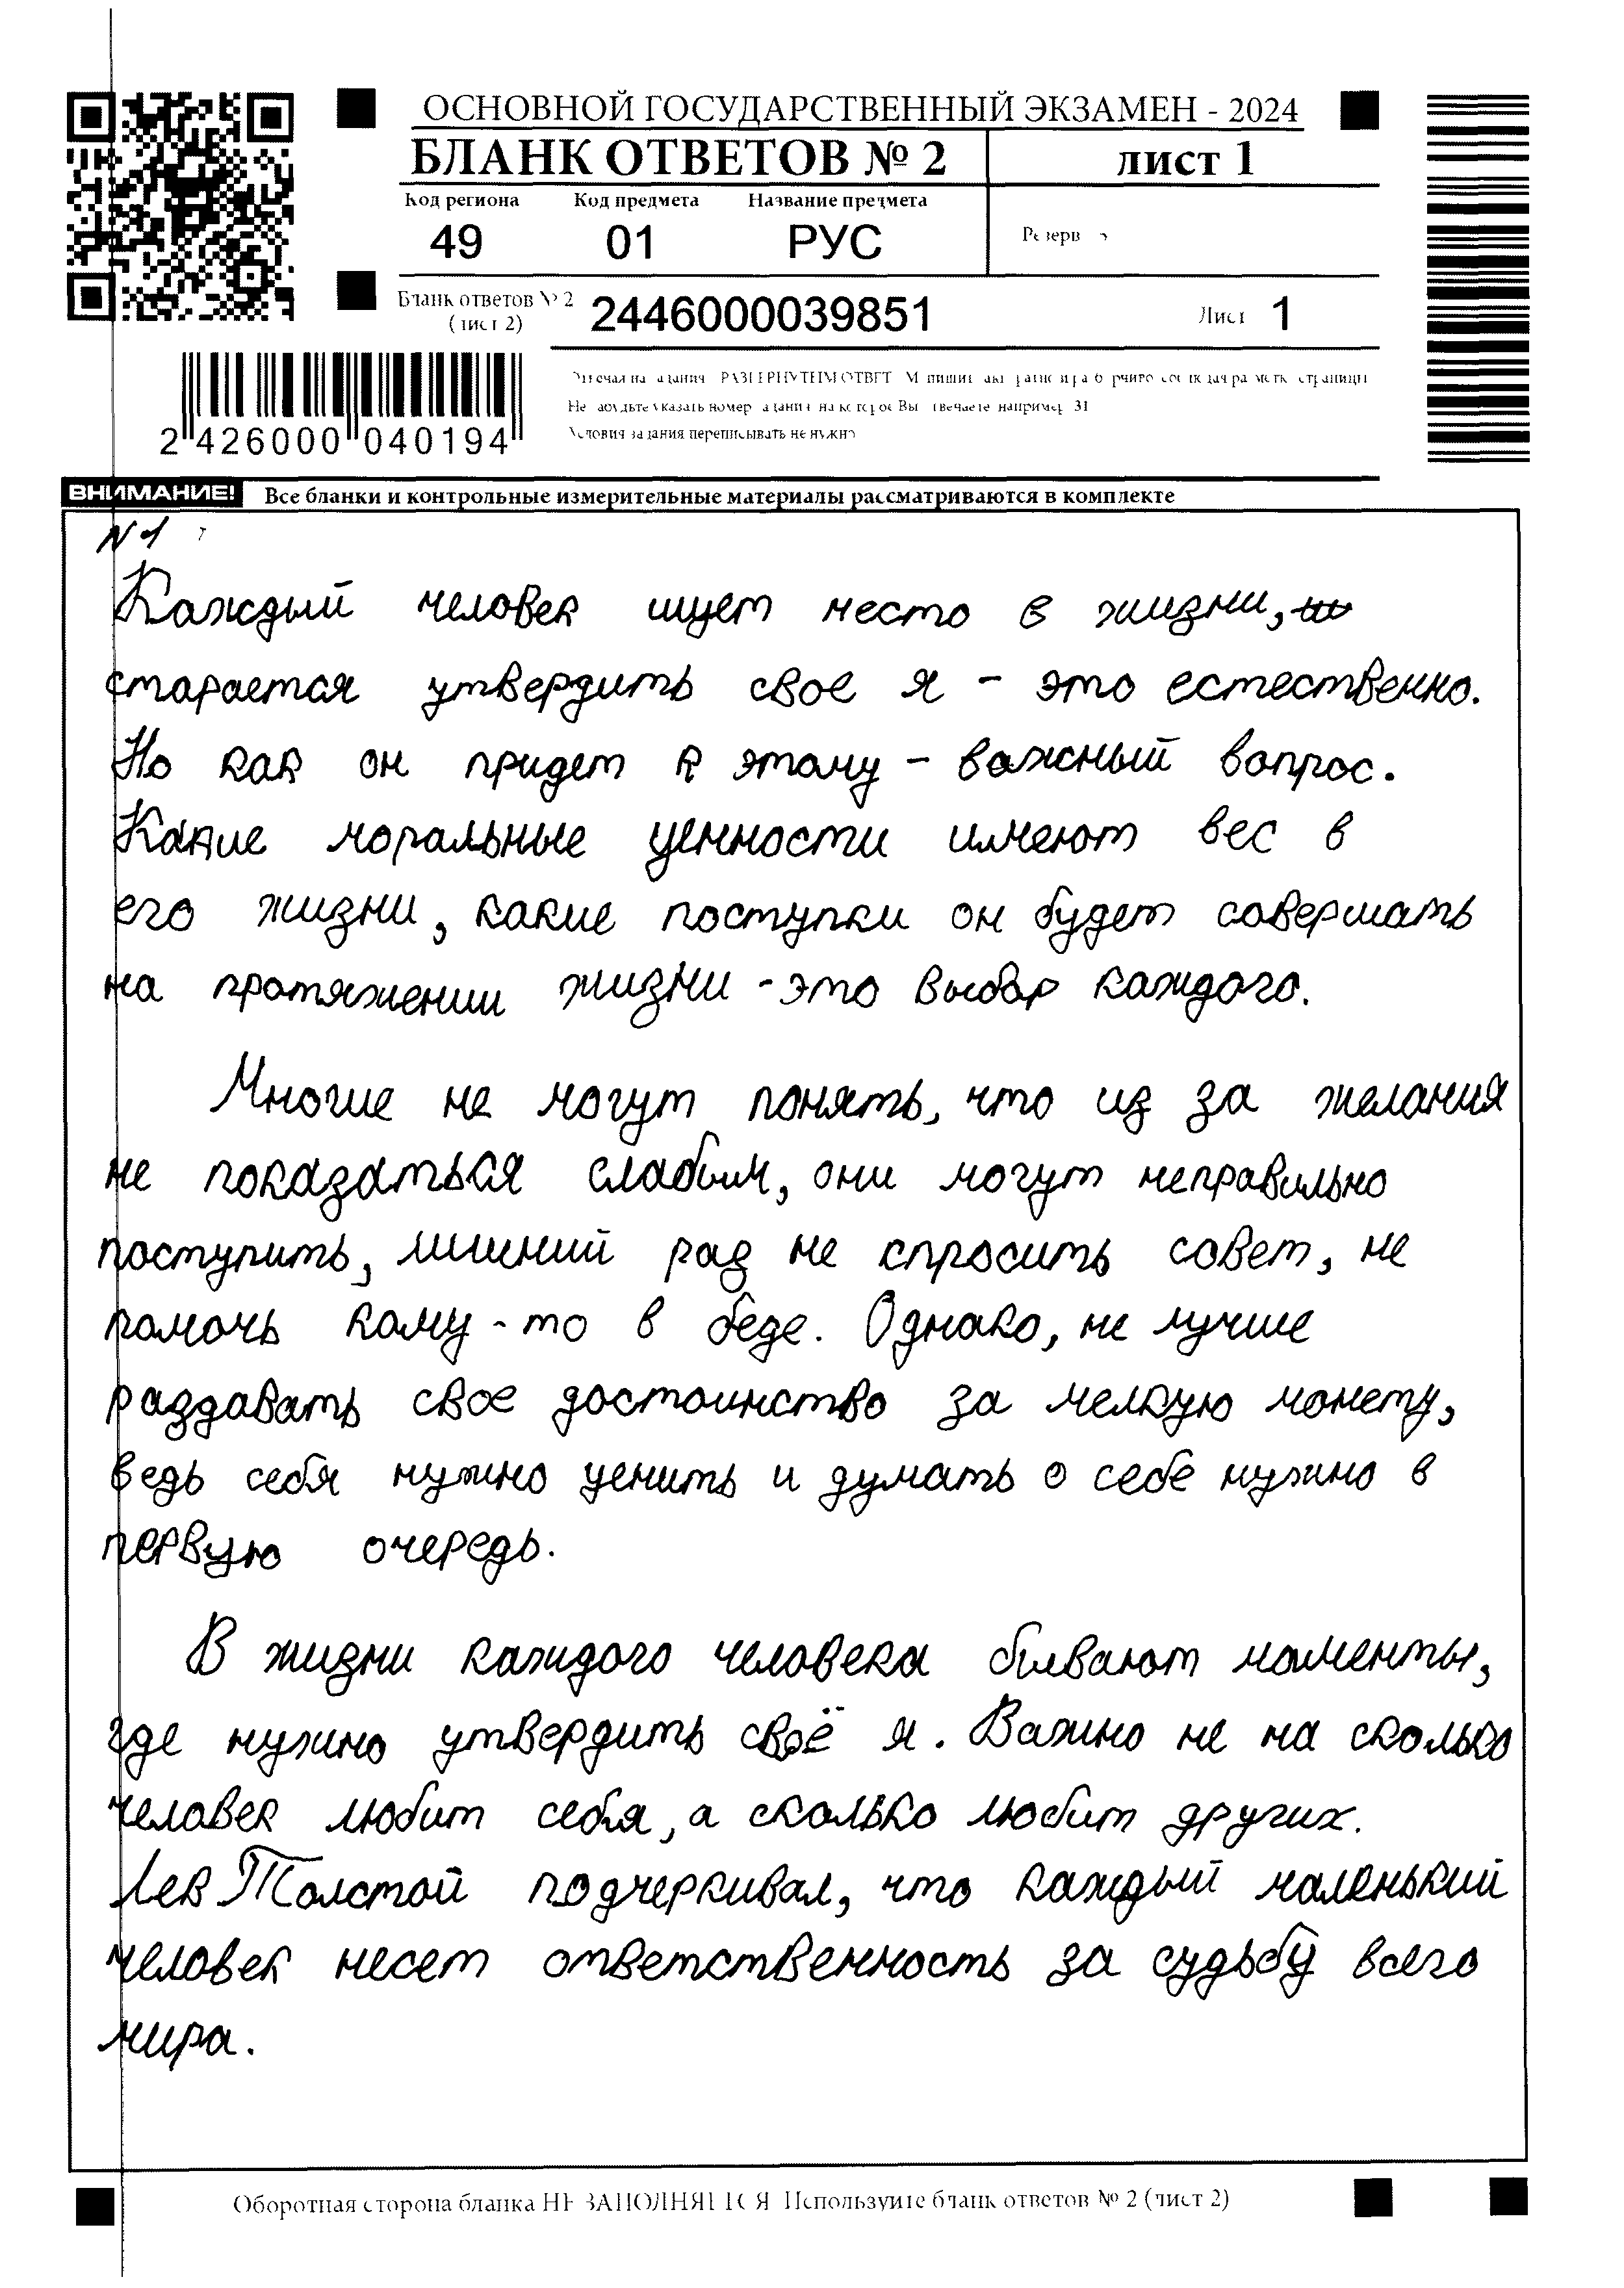 ОСНОВНОЙ ГОСУДАРСТВЕННЫЙ ЭКЗАМЕН - 2024
БЛАНК ОТВЕТОВ № 2
лист 1
Код региона Код предмета Название предмета
49 01 РУС
Резерв
Бланк ответов № 2
(лист 2)
2446000039851
Лист 1
2 426000 040194
Не забудьте указать номер задания на которое Вы отвечаете например 31
Условия задания переписывать не нужно
ВНИМАНИЕ! Все бланки и контрольные измерительные материалы рассматриваются в комплекте
N1
Каждый человек ищет место в жизни,
старается утвердить свое я - это естественно.
Но как он придет к этому - важный вопрос.
Какие моральные ценности имеют вес в
его жизни, какие поступки он будет совершать
на протяжении жизни - это выбор каждого.
Многие не могут понять, что из за желания
не показаться слабым, они могут неправильно
поступить, лишний раз не спросить совет, не
помочь кому-то в беде. Однако, не лучше
раздавать свое достоинство за мелкую монету,
ведь себя нужно ценить и думать о себе нужно в
первую очередь.
В жизни каждого человека бывают моменты,
где нужно утвердить своё я. Важно не на сколько
человек любит себя, а сколько любит других.
Лев Толстой подчеркивал, что каждый маленький
человек несет ответственность за судьбу всего
мира.
Оборотная сторона бланка НЕ ЗАПОЛНЯЕТСЯ. Используйте бланк ответов № 2 (лист 2)